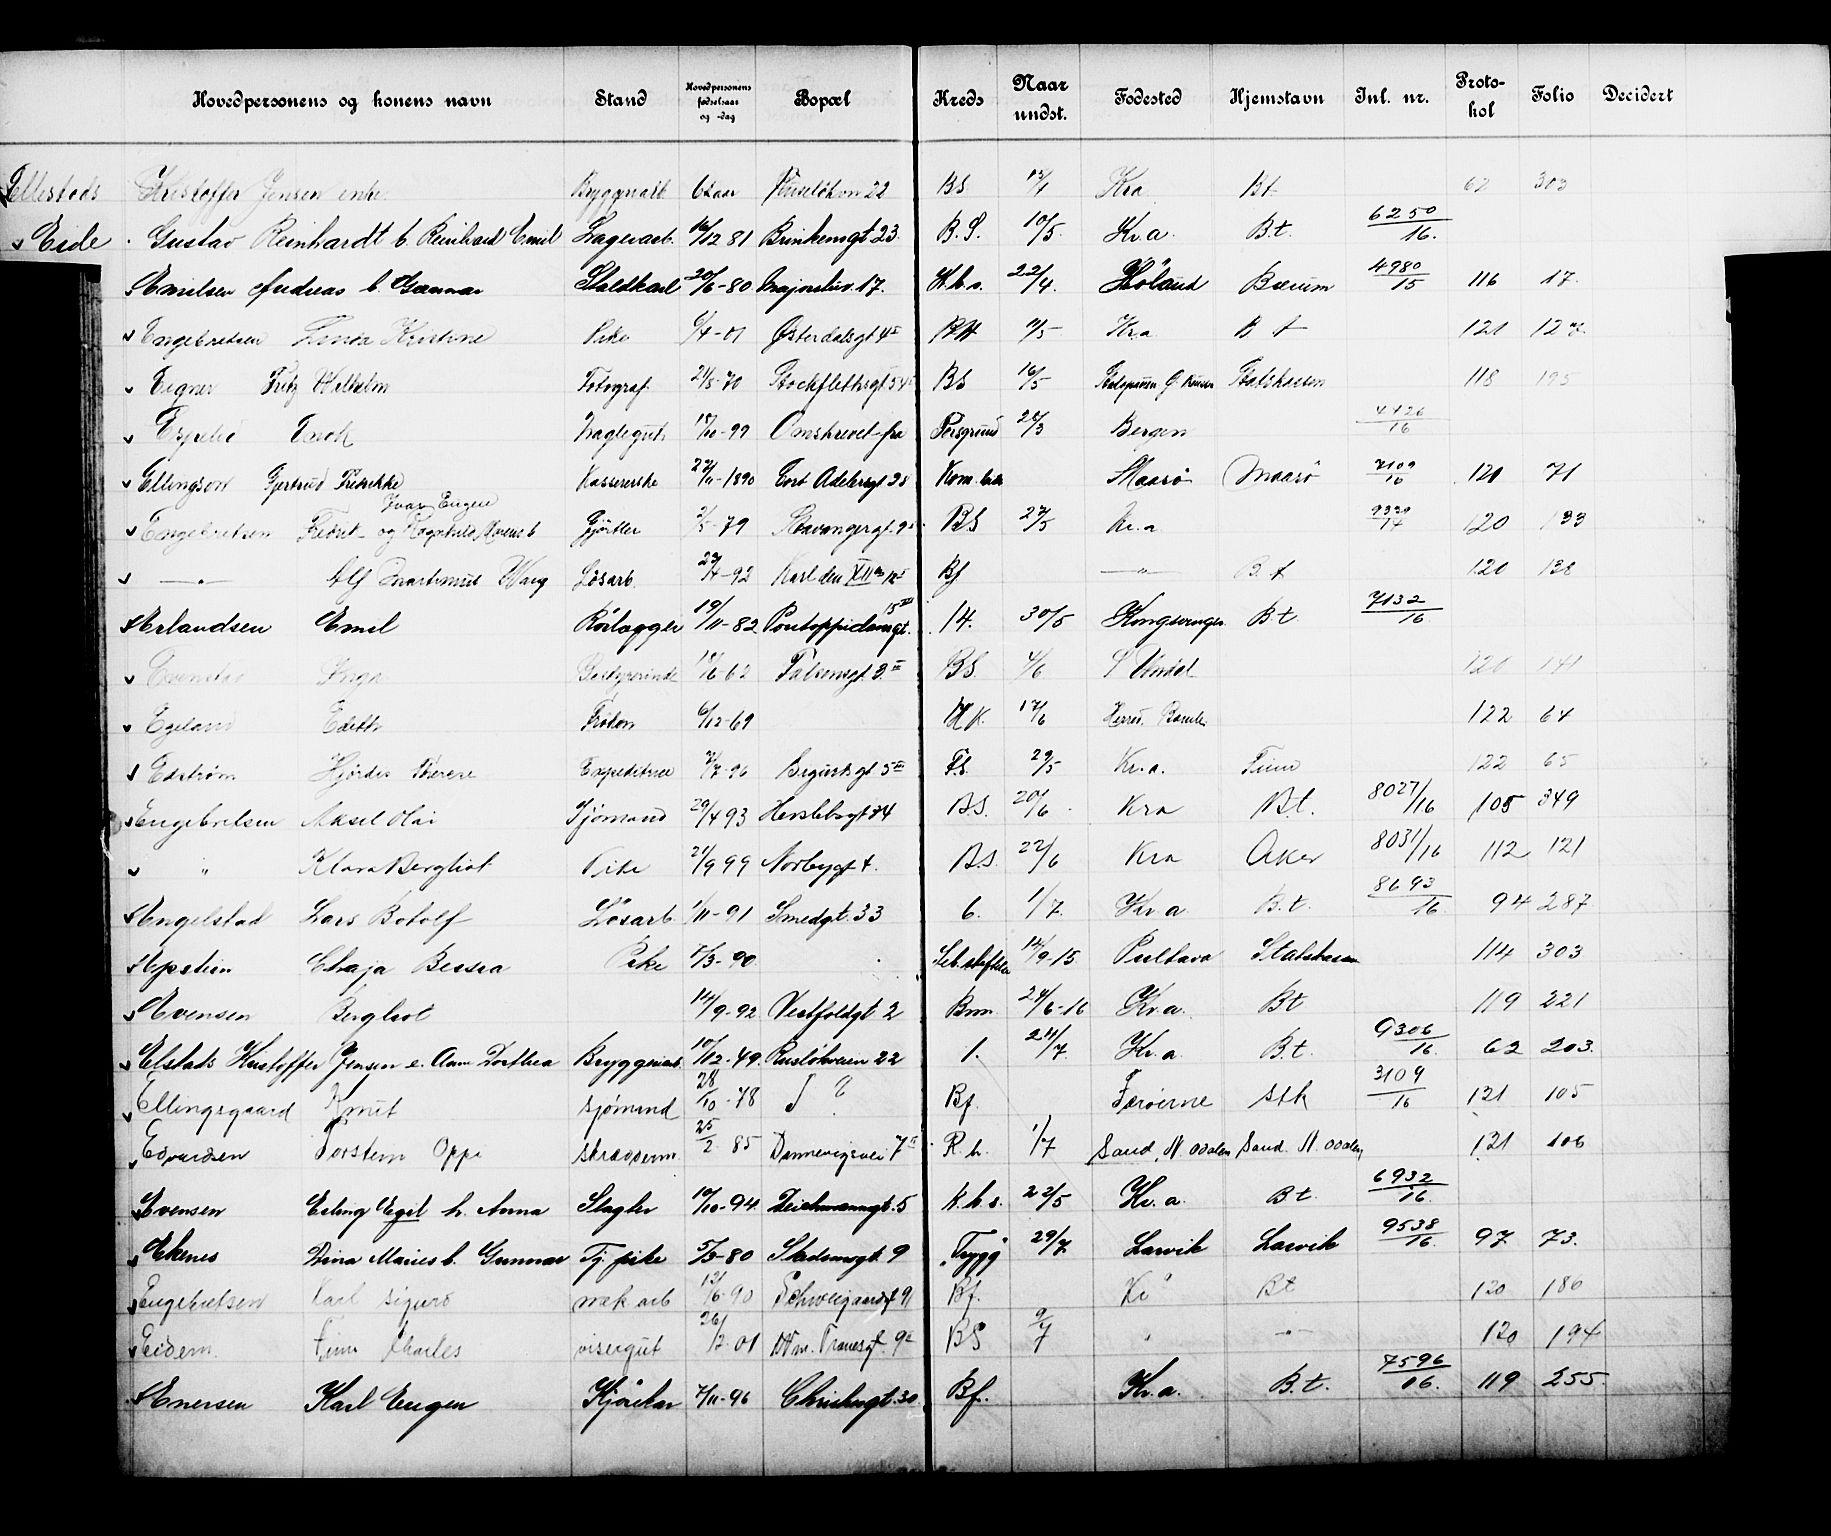 Hovedpersonens og konens navn Stand Hovedpersonens fødselsaar og -dag Bopæl Kreds Naar undst. Fødested Hjemstavn Inl. nr. Protokol Folio Decidert
Ellestads Kristoffer Jensen enke Bryggearb 62 aar 22 BS 12/1 Kra Bt 62 303
Eide Gustav Reinhardt b. Reinhard Emil Lagerarb. 14/12 81 Brinkensgt 23 B.S. 10/5. Kr.a. B.t. 6250/16.
Emilsen Andreas b. Gunnar Staldkarl 20/6-80 Majorstuv. 17. K.h.s. 22/4. Høland Bærum 4980/15 116 17.
Engebretsen Kristine Pike 6/4-01 Østerdalsgt 4 II 11/5 Kra B t 121 127
Eigner Fritz Wilhelm Fotograf 21/5-70 Stockflethsgt 54 BS 16/5 Statskassen 118 195
Espelid 18/10-99 Omskrevet fra Porsgrund 28/3 Bergen 4426/16
Ellingson Gjertrud Fredrikke Kassererske 27/11-1890 Cort Adelersgt 28 Maasø Maasø 7109/16 120 71
Ivar Eugene
Engebretsen Fredrik og Ragnhild Gjørtler 2/5-79 Stavangergt. 9 BS 27/5 Kr.a 9330/14 120 133
—"— Alf Martinius Waag Løsarb. 29/4-92 Karl den XII's Bf —"— B.t 120 138
Erlandsen Emil Rørlægger 19/11-82 Pontoppidansgt. 15 VI 14. 30/5 Kongsvinger B.t 7132/16.
Evenstad Inga Bestyrerinde 18/6-62 Falsensgt. 3. III BS. 4/6 120 141
Egeland Edith Frøken 6/12-69 17/6 Herred. Bamle 122 64
Edstrøm Hjørdis Therese Expeditrice 2/7-96 5 III F.S. 29/5 Kr.a. 122 65
Engebretsen Aksel Olai Sjømand 29/4 93 Herslebsgt 34 B.S. 20/6. Kra Bt. 8027/16 105 349
" Klara Bergliot Pike 21/9 99 Norbygt 4. B.S. 22/6 Kra Aker 8031/16 112 121
Engelstad Lars Botolf Løsarb. 1/11-91 Smedgt. 33 6. 1/7. Kr.a. B.t. 8693/16. 94 287
Epstein Chaja Bessra Pike 7/3-90 14/9-15. Pultava Statskassen 114 303
Evensen Bergliot 14/9-92 Vestfoldgt 2 Brm 24/6-16 Kr.a. Bt 119 221
Elstads Kristoffer Jensen e. Ane Dorthea Bryggearb. 10/12-49. Ruseløkveien 22 1. 24/7. Kr.a. B.t. 9306/16. 62 203.
Ellingsgaard Knut sjømand 28/10-78 ? Bf. Færøerne Stk 3109/16 121 105
Edvardsen Torstein Oppi skrædderm. 25/2 85 Dannevigsvei 7 II R.h. 1/7 Sand, N. Odalen Sand. N. Odalen, 121 106
Evensen Erling Egil h. Anna Slagter 10/10-94. Deichmannsgt. 5 K.h.s. 22/5 Kr.a. Bt. 6932/16.
Ekenes Dina Maries b. Gunnar Tj. pike 5/3-80 Stadensgt. 9 „Trygg" 29/7. Larvik Larvik 9538/16. 97. 73.
Engebretsen Karl Sigurd mek arb 12/6-90 Schweigaardsgt 91 Bf. Kr Bt 120 180
Eidem. Finn Charles visergut 26/2-01 Hm. Tranesgt. 9 BS 9/7 " —"— 120 194
Enersen Karl Eugen Kjørekar 7/11-96 Christiesgt. 30 Bf. Kr.a. B.t. 7596/16. 119 255.